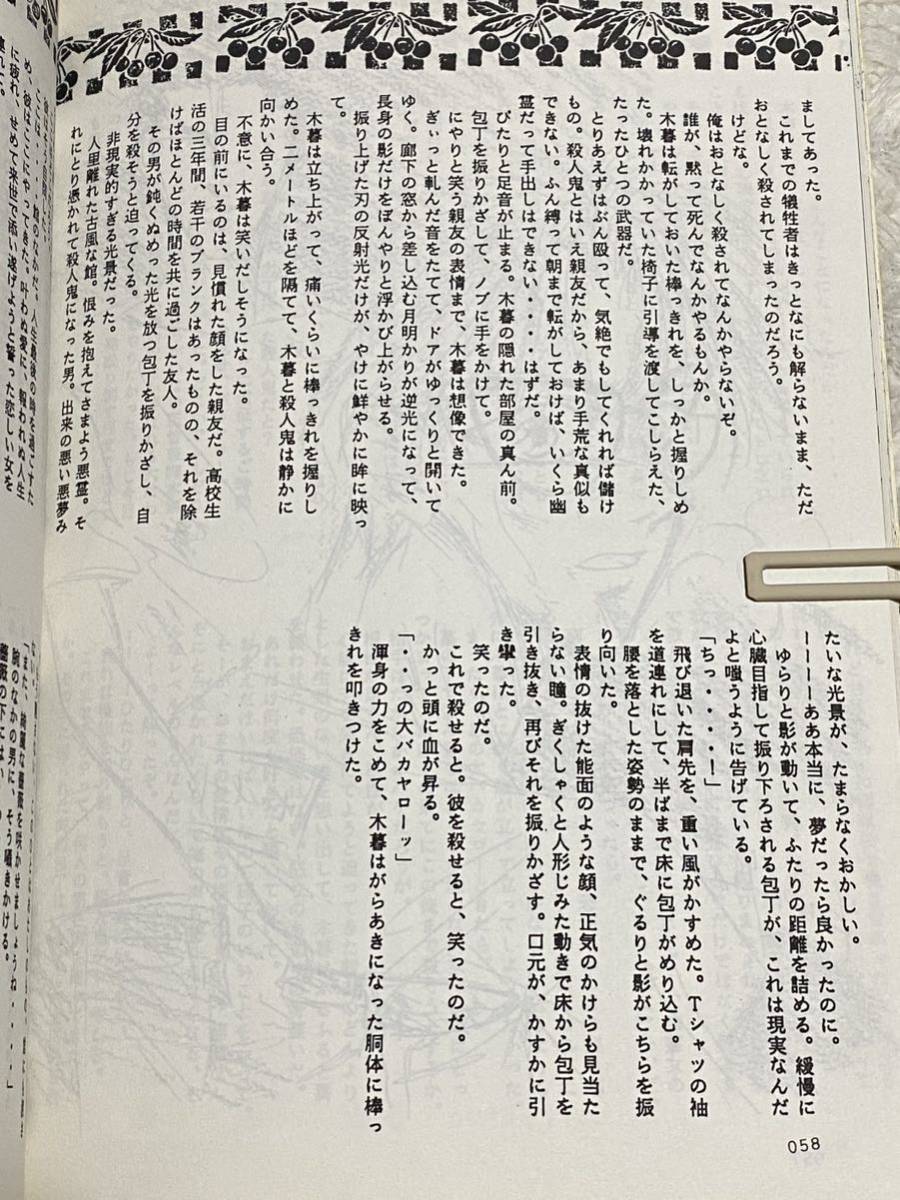 ましてあった。
これまでの犠牲者はきっとなにも解らないまま、ただ
おとなしく殺されてしまったのだろう。
けどな。
俺はおとなしく殺されてなんかやらないぞ。
誰が、黙って死んでなんかやるもんか。
木暮は転がしておいた棒っきれを、しっかと握りしめ
た。壊れかかっていた椅子に引導を渡してこしらえた、
たったひとつの武器だ。
とりあえずはぶん殴って、気絶でもしてくれれば儲け
もの。殺人鬼とはいえ親友だから、あまり手荒な真似も
できない。ふん縛って朝まで転がしておけば、いくら幽
霊だって手出しはできない・・・・はずだ。
ぴたりと足音が止まる。木暮の隠れた部屋の真ん前。
包丁を振りかざして、ノブに手をかけて。
にやりと笑う親友の表情まで、木暮は想像できた。
ぎぃっと軋んだ音をたてて、ドアがゆっくりと開いて
ゆく。廊下の窓から差し込む月明かりが逆光になって、
長身の影だけをぼんやりと浮かび上がらせる。
振り上げた刃の反射光だけが、やけに鮮やかに眸に映っ
て。
木暮は立ち上がって、痛いくらいに棒っきれを握りし
めた。二メートルほどを隔てて、木暮と殺人鬼は静かに
向かい合う。
不意に、木暮は笑いだしそうになった。
目の前にいるのは、見慣れた顔をした親友だ。高校生
活の三年間、若干のブランクはあったものの、それを除
けばほとんどの時間を共に過ごした友人。
その男が鈍くぬめった光を放つ包丁を振りかざし、自
分を殺そうと迫ってくる。
非現実的すぎる光景だった。
人里離れた古風な館。恨みを抱えてさまよう悪霊。そ
れにとり憑かれて殺人鬼になった男。出来の悪い悪夢み
たいな光景が、たまらなくおかしい。
ーーーーああ本当に、夢だったら良かったのに。
ゆらりと影が動いて、ふたりの距離を詰める。緩慢に
心臓目指して振り下ろされる包丁が、これは現実なんだ
よと嗤うように告げている。
「ちっ・・・・！」
飛び退いた肩先を、重い風がかすめた。Tシャツの袖
を道連れにして、半ばまで床に包丁がめり込む。
腰を落とした姿勢のままで、ぐるりと影がこちらを振
り向いた。
表情の抜けた能面のような顔、正気のかけらも見当た
らない瞳。ぎくしゃくと人形じみた動きで床から包丁を
引き抜き、再びそれを振りかざす。口元が、かすかに引
き攣った。
笑ったのだ。
これで殺せると。彼を殺せると、笑ったのだ。
かっと頭に血が昇る。
「・・・っの大バカヤローッ」
渾身の力をこめて、木暮はがらあきになった胴体に棒っ
きれを叩きつけた。
058
め、彼はここにやってきた。叶わぬ愛に、報われぬ人生
に疲れ、せめて来世で添い遂げようと誓った恋しい女を
連れて。
「また、綺麗な薔薇を咲かせましょうね・・・・」
腕のなかの男に、そう囁きかける。